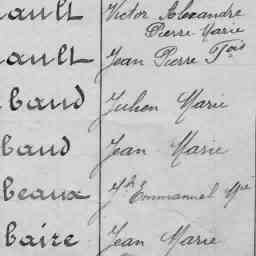 ault Victor Alexandre
Pierre Marie
ault Jean Pierre Fois
baud Julien Marie
baud Jean Marie
beaux Jh Emmanuel Mie
baire Jean Marie